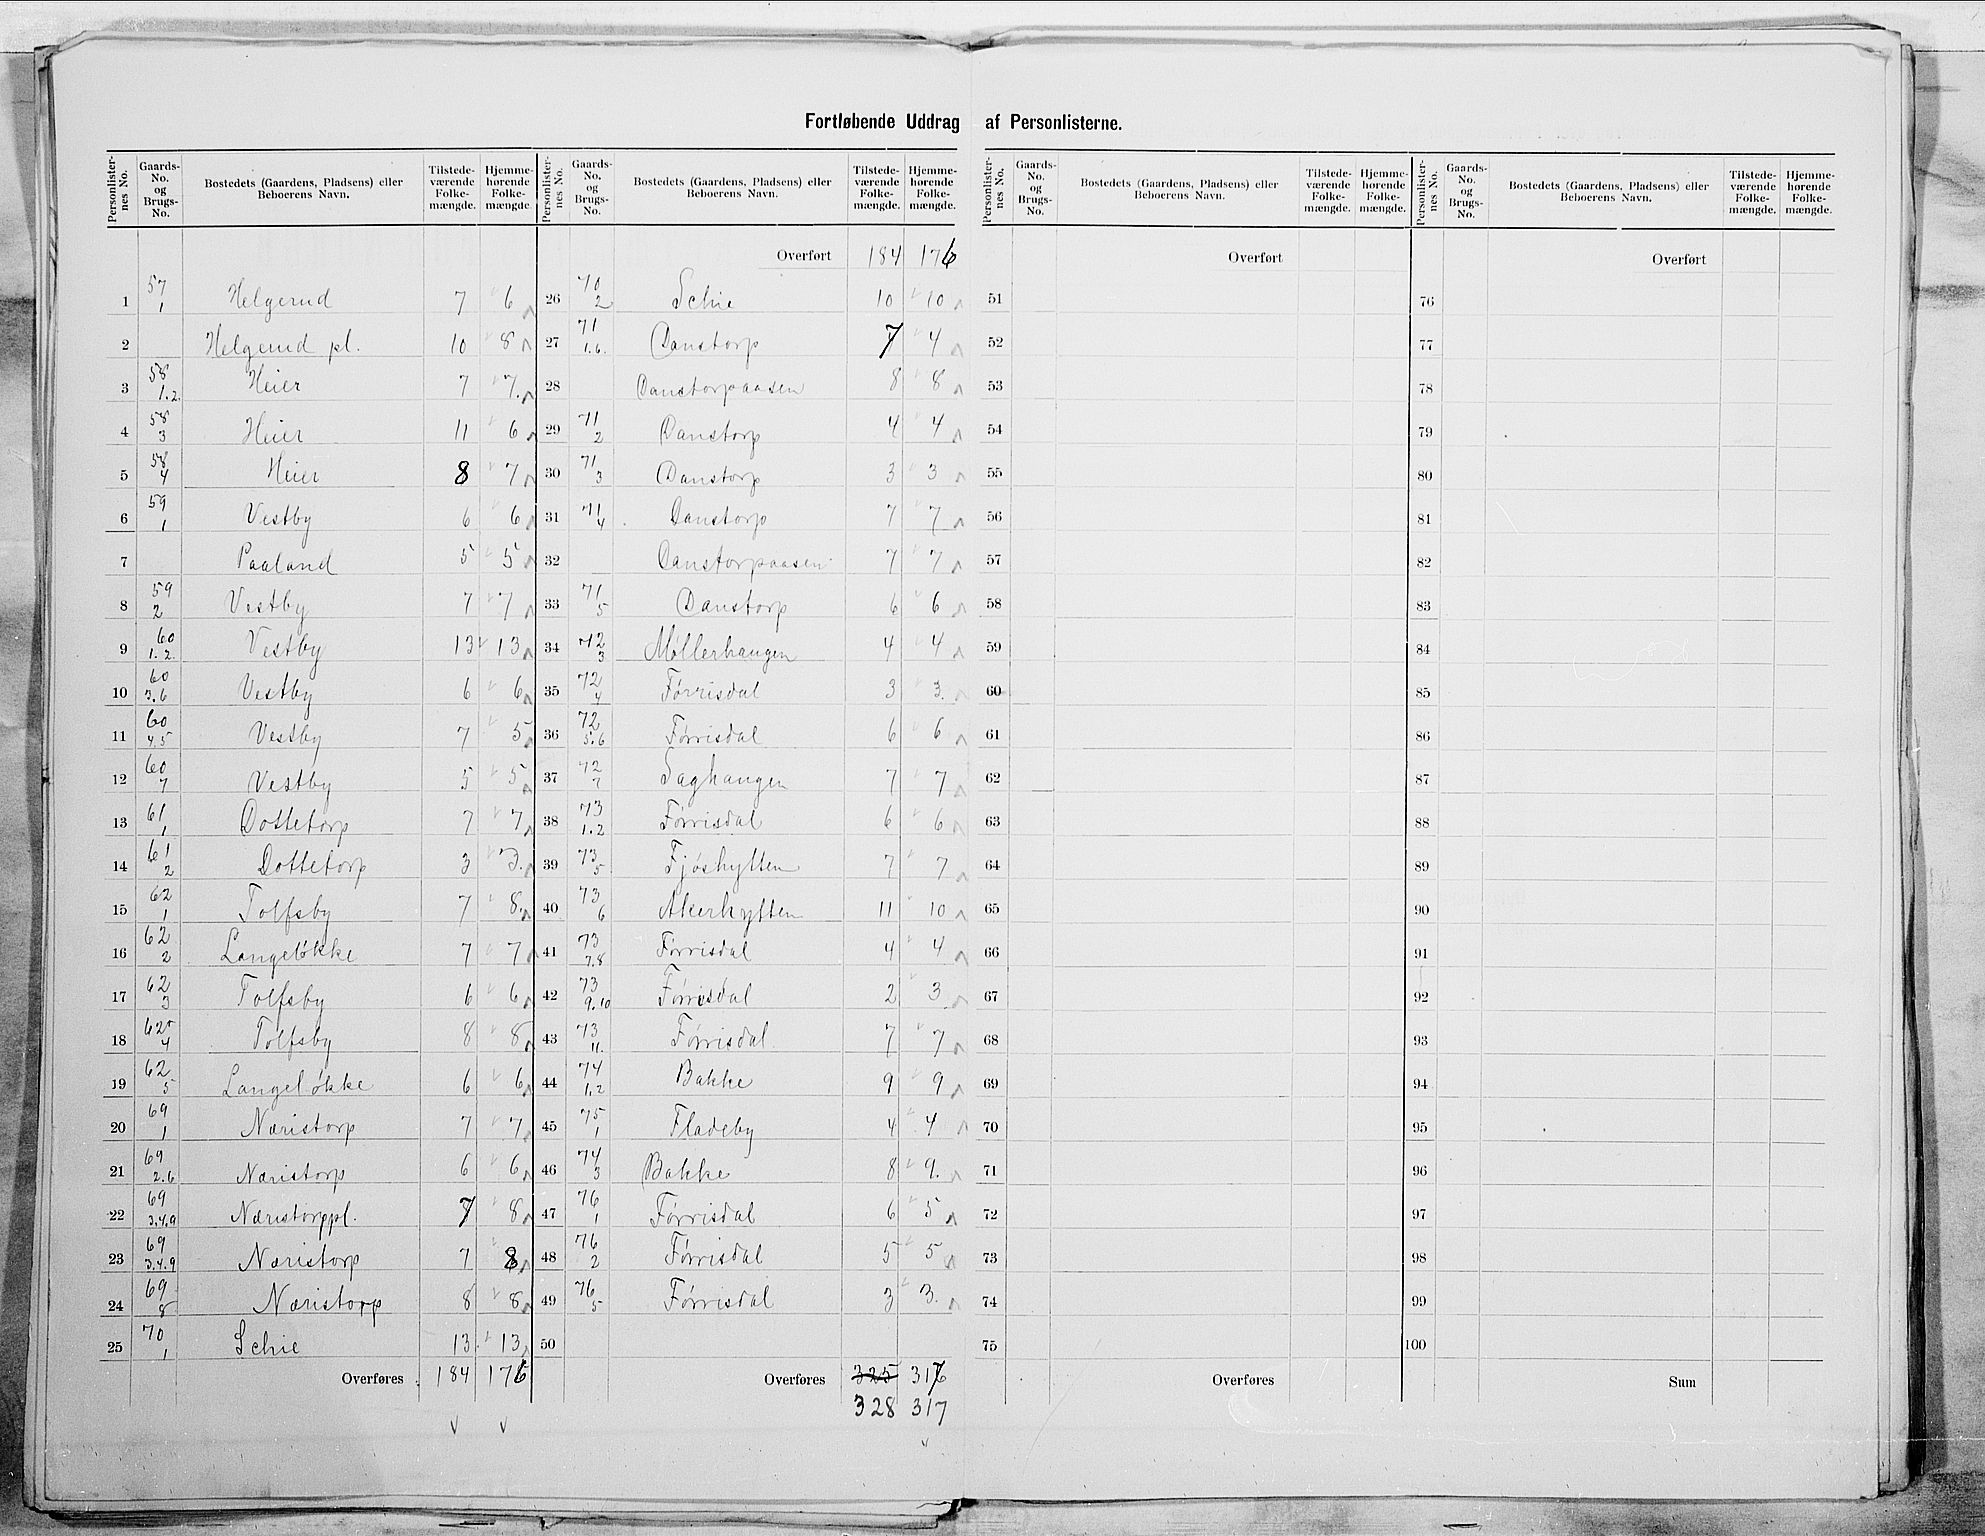 Fortløbende Uddrag af Personlisterne.
Personlister-nes No. | Gaards-No. og Brugs-No. | Bostedets (Gaardens, Pladsens) eller Beboerens Navn. | Tilstede-værende Folke-mængde. | Hjemme-hørende Folke-mængde.
1 | 57 1 | Helgerud | 7 | 6
2 | | Helgerud pl. | 10 | 8
3 | 58 1.2. | Heier | 7 | 7.
4 | 58 3 | Heier | 11 | 6
5 | 58 4 | Heier | 8 | 7
6 | 59 1 | Vestby | 6 | 6
7 | | Paaland | 5 | 5
8 | 59 2 | Vestby | 7 | 7
9 | 60 1.2. | Vestby | 13 | 13
10 | 60 3.6 | Vestby | 6 | 6
11 | 60 4.5 | Vestby | 7 | 5
12 | 60 7 | Vestby | 5 | 5
13 | 61 1 | Dottetorp | 7 | 7
14 | 61 2 | Dottetorp | 3 | 3.
15 | 62 1 | Tolfsby | 7 | 8
16 | 62 2 | Langeløkke | 7 | 7
17 | 62 3 | Tolfsby | 6 | 6
18 | 62 4 | Tolfsby | 8 | 8
19 | 62 5 | Langeløkke | 6 | 6
20 | 69 1 | Næristorp | 7 | 7
21 | 69 2.6 | Næristorp | 6 | 6
22 | 69 3.4.9 | Næristorppl. | 7 | 8
23 | 69 3.4.9 | Næristorp | 7 | 8
24 | 69 8 | Næristorp | 8 | 8
25 | 70 1 | Schie | 13 | 13
Overføres 184 176
Personlister-nes No. | Gaards-No. og Brugs-No. | Bostedets (Gaardens, Pladsens) eller Beboerens Navn. | Tilstede-værende Folke-mængde. | Hjemme-hørende Folke-mængde.
Overført 184 176
26 | 70 2 | Schie | 10 | 10
27 | 71 1.6. | Danstorp | 7 | 4
28 | | Danstorpaasen | 8 | 8
29 | 71 2 | Danstorp | 4 | 4
30 | 71 3 | Danstorp | 3 | 3
31 | 71 4 | Danstorp | 7 | 7
32 | | Danstorpaasen | 7 | 7
33 | 71 5 | Danstorp | 6 | 6
34 | 72 3 | Møllerhaugen | 4 | 4
35 | 72 4 | Førrisdal | 3 | 3.
36 | 72 5.6 | Førrisdal | 6 | 6
37 | 72 7 | Saghaugen | 7 | 7
38 | 73 1.2 | Førrisdal | 6 | 6
39 | 73 5 | Fjøshytten | 7 | 7
40 | 73 6 | Akerhytten | 11 | 10
41 | 73 7.8 | Førrisdal | 4 | 4
42 | 73 9.10 | Førrisdal | 2 | 3
43 | 73 11. | Førrisdal | 7 | 7
44 | 74 1.2 | Bakke | 9 | 9
45 | 75 1 | Fladeby | 4 | 4
46 | 74 3 | Bakke | 8 | 9.
47 | 76 1 | Førrisdal | 6 | 5
48 | 76 2 | Førrisdal | 5 | 5
49 | 76 5 | Førrisdal | 3 | 3.
50
Overføres 325 317
328 317
Personlister-nes No. | Gaards-No. og Brugs-No. | Bostedets (Gaardens, Pladsens) eller Beboerens Navn. | Tilstede-værende Folke-mængde. | Hjemme-hørende Folke-mængde.
Overført
51
52
53
54
55
56
57
58
59
60
61
62
63
64
65
66
67
68
69
70
71
72
73
74
75
Overføres
Personlister-nes No. | Gaards-No. og Brugs-No. | Bostedets (Gaardens, Pladsens) eller Beboerens Navn. | Tilstede-værende Folke-mængde. | Hjemme-hørende Folke-mængde.
Overført
76
77
78
79
80
81
82
83
84
85
86
87
88
89
90
91
92
93
94
95
96
97
98
99
100
Sum